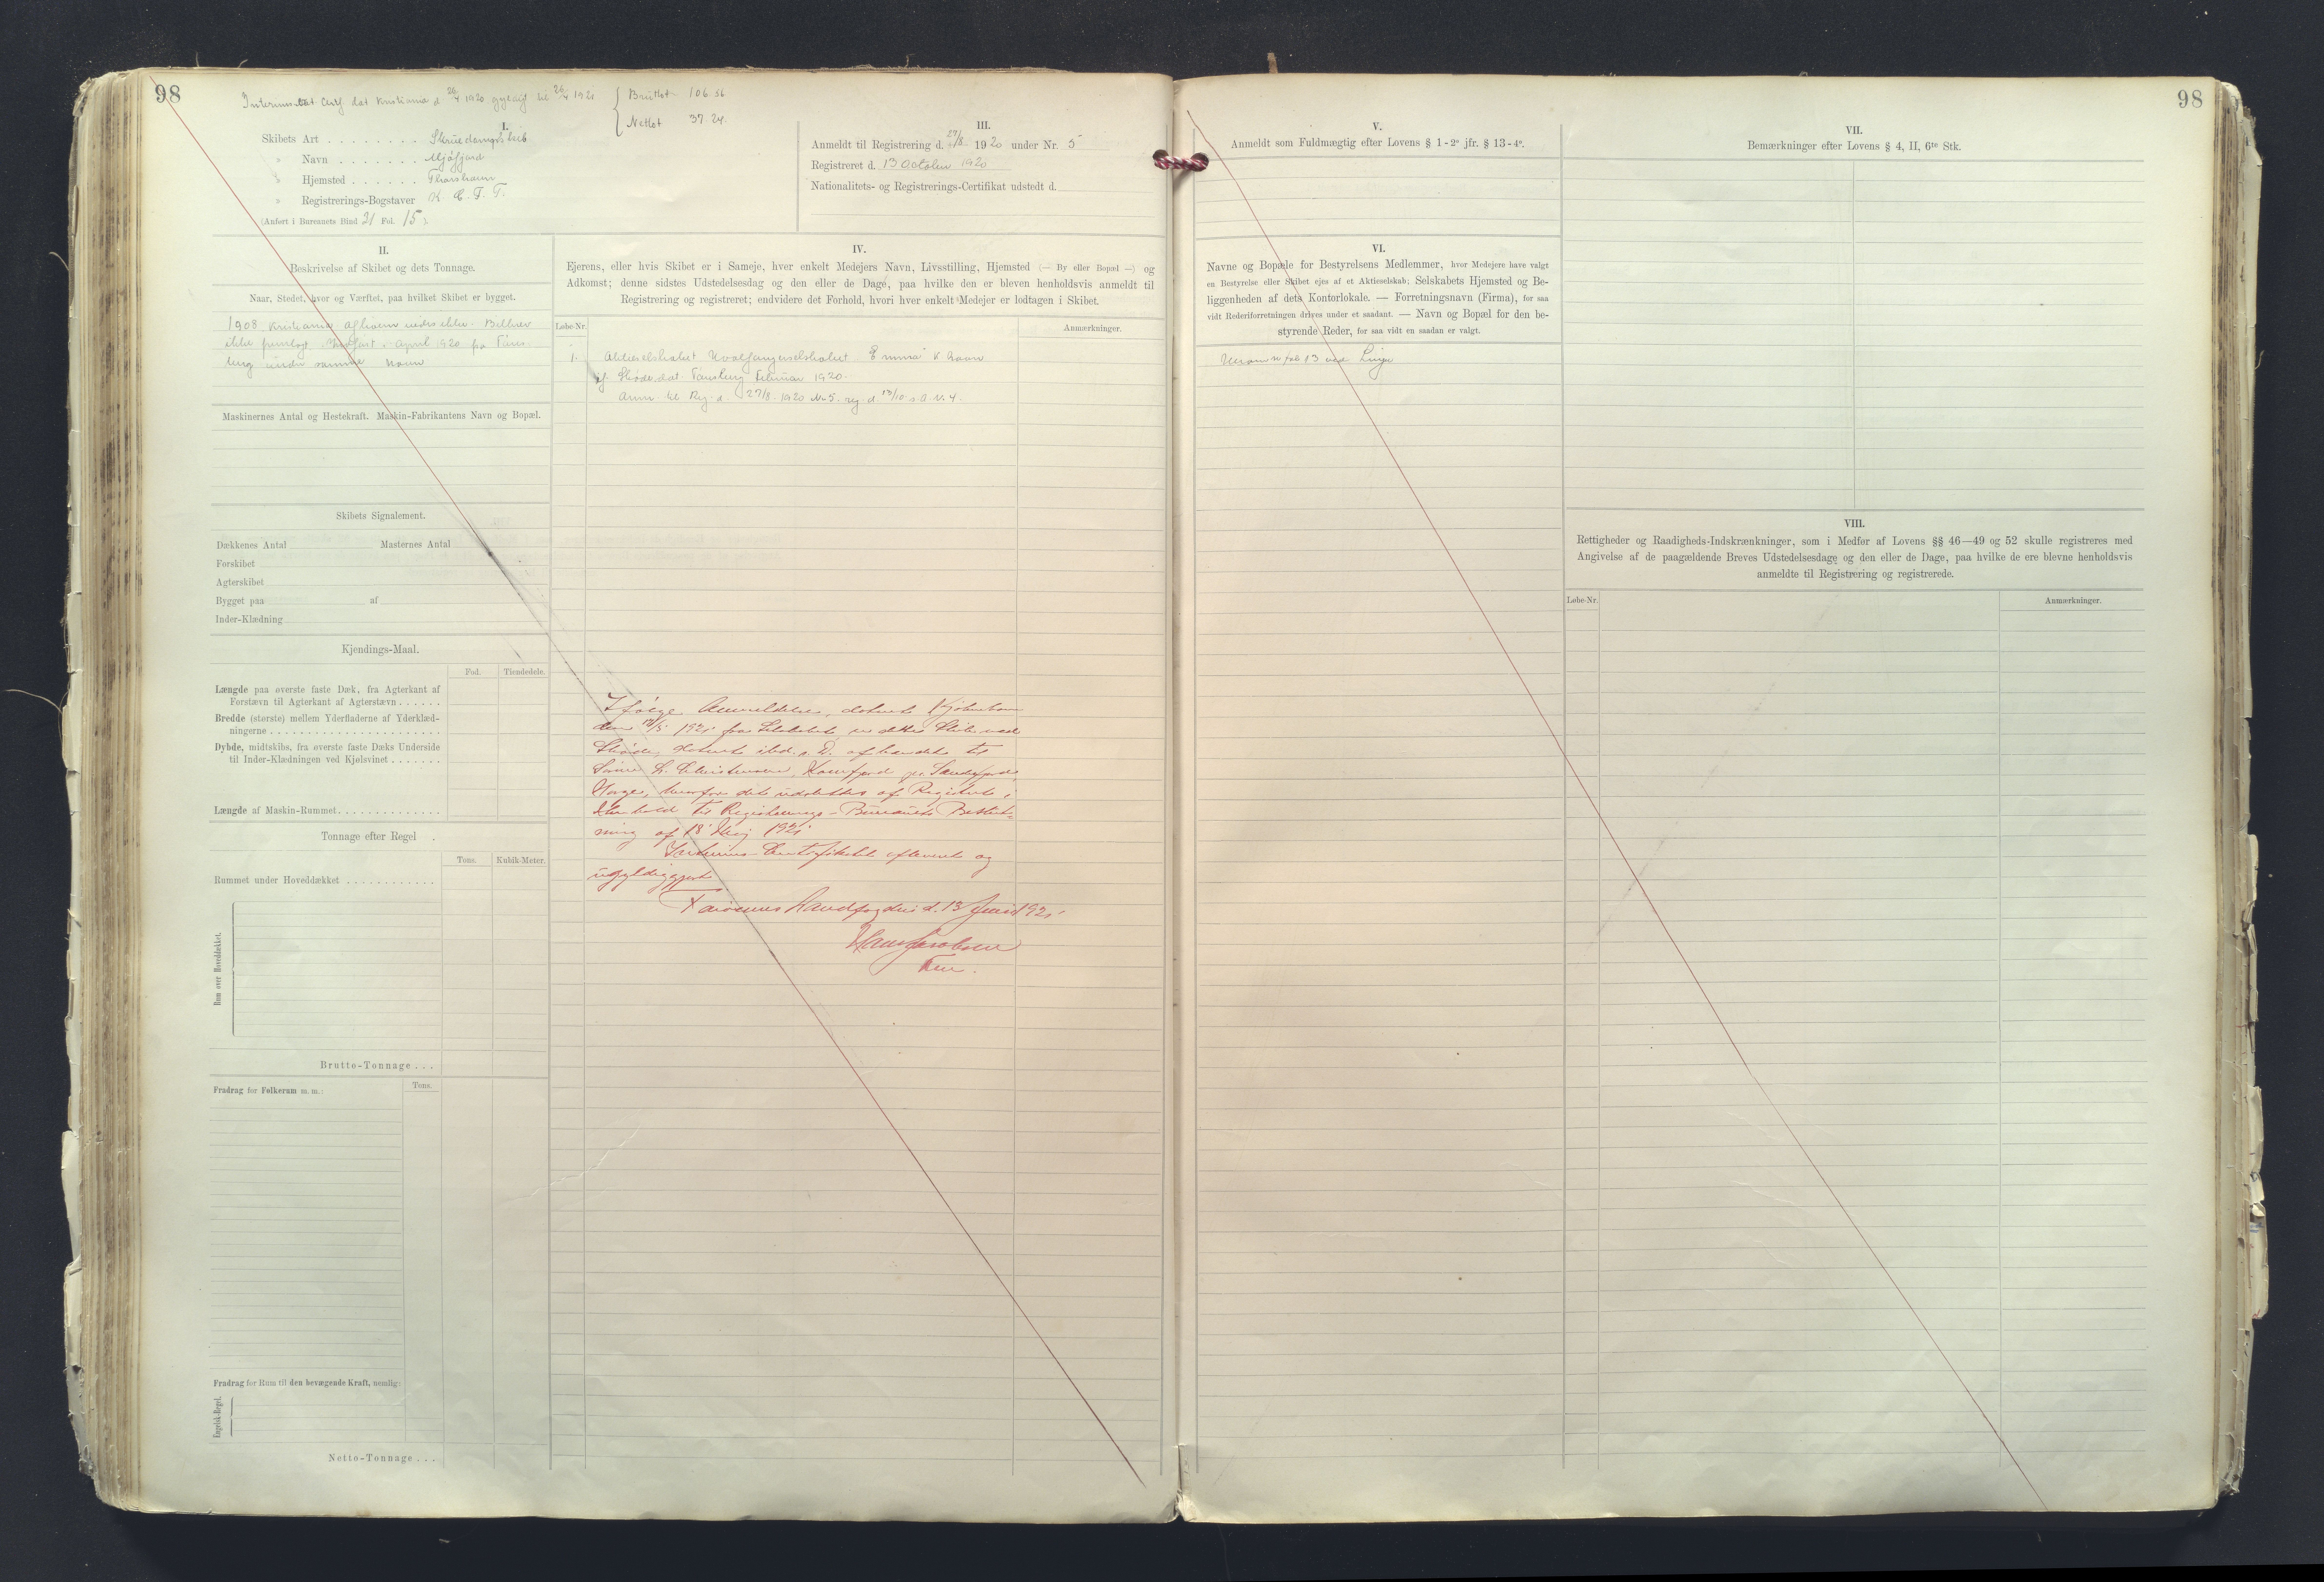 98
Interims Cert. dat Kristiania d 26/4 1920 gyldig til 26/4 1921
Brutto 106.56
Netto 37.24.
I.
Skibets Art . . . . . . . . Skruedampskib
» Navn . . . . . . . Mjófjord
» Hjemsted . . . . . . Thorshavn
» Registrerings-Bogstaver
(Anført i Bureauets Bind 21 Fol. 15)
III.
Anmeldt til Registrering d. 27/8 1920 under Nr. 5
Registreret d. 13 October 1920
Nationalitets- og Registrerings-Certifikat udstedt d.
II.
Beskrivelse af Skibet og dets Tonnage.
Naar, Stedet, hvor og Værftet, paa hvilket Skibet er bygget.
1908 Kristiania Bilbrev
ikke april 1920 fra Tøns-
berg under samme Navn
Maskinernes Antal og Hestekraft. Maskin-Fabrikantens Navn og Bopæl.
Skibets Signalement.
Dækkenes Antal Masternes Antal
Forskibet
Agterskibet
Bygget paa af
Inder-Klædning
Kjendings-Maal.
Fod. Tiendedele.
Længde paa øverste faste Dæk, fra Agterkant af
Forstævn til Agterkant af Agterstævn . . . . . .
Bredde (største) mellem Yderfladerne af Yderklæd-
ningerne . . . . . . . . . . . . . . . . . . . . . .
Dybde, midtskibs, fra øverste faste Dæks Underside
til Inder-Klædningen ved Kjølsvinet . . . . . . .
Længde af Maskin-Rummet. . . . . . . . . . . . .
Tonnage efter Regel .
Tons. Kubik-Meter.
Rummet under Hoveddækket . . . . . . . . . . . .
Rum over Hoveddækket.
Brutto-Tonnage . . .
Fradrag for Folkerum m. m.: Tons.
Fradrag for Rum til den bevægende Kraft, nemlig:
Engelsk-Regel.
Netto-Tonnage . . .
IV.
Ejerens, eller hvis Skibet er i Sameje, hver enkelt Medejers Navn, Livsstilling, Hjemsted (— By eller Bopæl —) og
Adkomst; denne sidstes Udstedelsesdag og den eller de Dage, paa hvilke den er bleven henholdsvis anmeldt til
Registrering og registreret; endvidere det Forhold, hvori hver enkelt Medejer er lodtagen i Skibet.
Løbe-Nr. Anmærkninger.
1. Aktieselskabet Hvalfangerselskabet "Emma" K havn
af Skøde dat. Tønsberg Februar 1920.
Anm. til Reg. d. 27/8 1920 Nr. 5 reg. d. 13/10 s. A. N. 4.
Ifølge Anmeldelse, dateret Kjøbenhavn
den 1921 fra Selskabet er dette Skib ved
Skøde, dateret ibd. s. D. afhændet til
Søren L. Christensen, pr. Sandefjord,
Norge, hvorfor det udslettes af Registret i
Henhold til Registrerings-Bureauets Beslut-
ning af 18' Maj 1921.
Interims-Certifikatet afleveret og
ugyldiggjort.
Færøernes Landfogderi d. 13 Juni 1921
V.
Anmeldt som Fuldmægtig efter Lovens § 1-2° jfr. § 13-4°.
VI.
Navne og Bopæle for Bestyrelsens Medlemmer, hvor Medejere have valgt
en Bestyrelse eller Skibet ejes af et Aktieselskab; Selskabets Hjemsted og Be-
liggenheden af dets Kontorlokale. — Forretningsnavn (Firma), for saa
vidt Rederiforretningen drives under et saadant. — Navn og Bopæl for den be-
styrende Reder, for saa vidt en saadan er valgt.
VII.
Bemærkninger efter Lovens § 4, II, 6te Stk.
98
VIII.
Rettigheder og Raadigheds-Indskrænkninger, som i Medfør af Lovens §§ 46—49 og 52 skulle registreres med
Angivelse af de paagældende Breves Udstedelsesdage og den eller de Dage, paa hvilke de ere blevne henholdsvis
anmeldte til Registrering og registrerede.
Løbe-Nr. Anmærkninger.